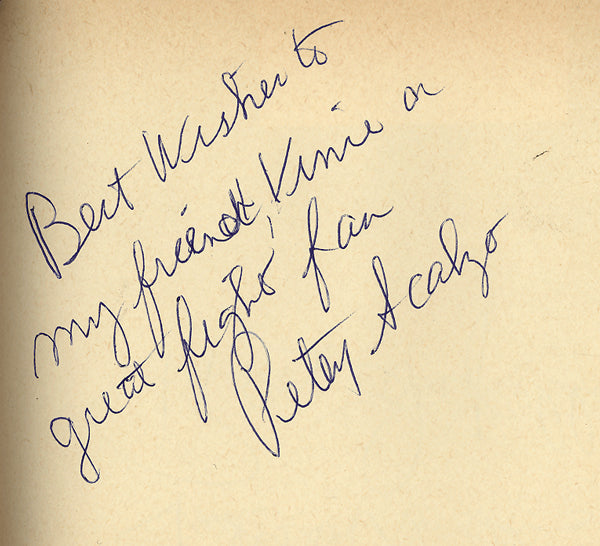 Best Wishes to
my friend Vinnie a
great fight fan
Petey Scalzo